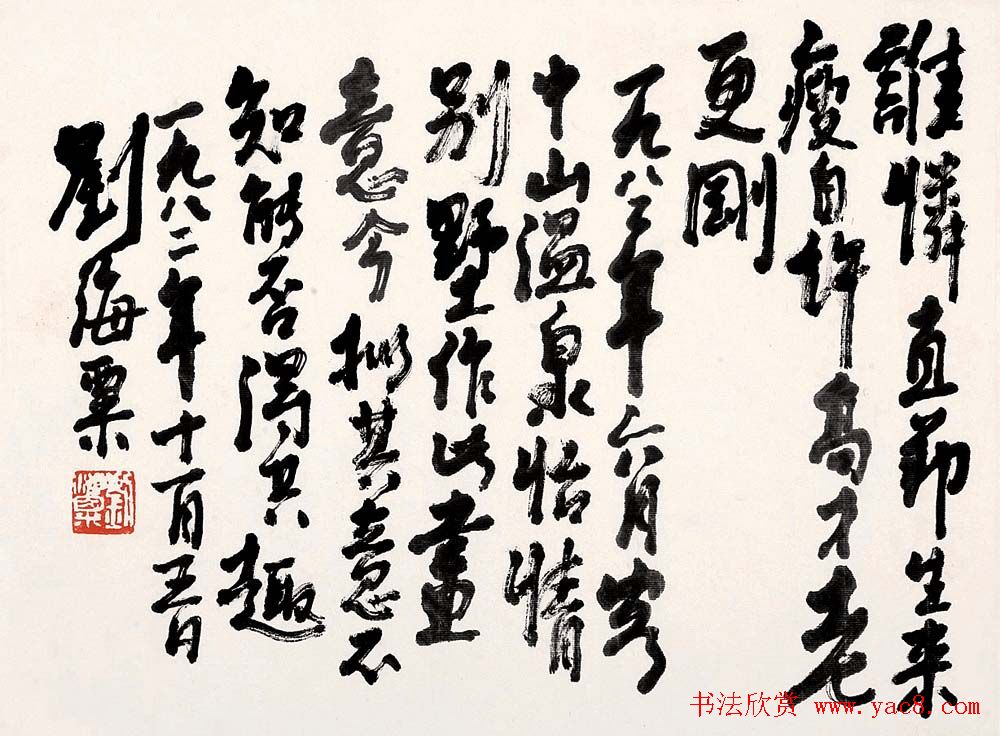 誰憐直節生來
瘦自許高才老
更剛
一九八二年六月客
中山溫泉怡情
别墅作此畫
意今其意不
知能否得其趣
一九八二年十一月五日
劉海粟
劉海粟
书法欣赏 www.yac8.com